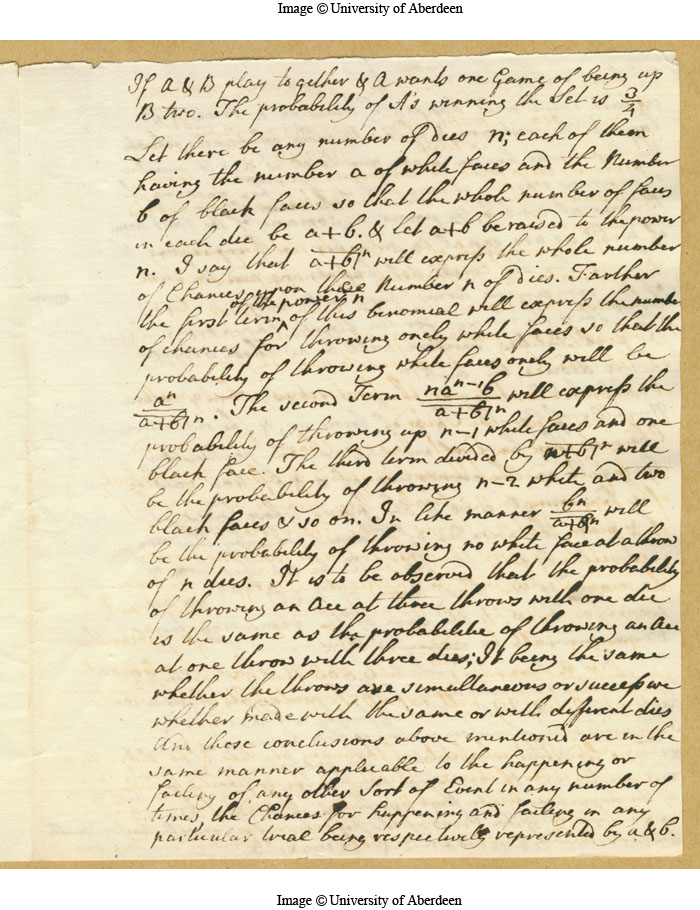 Image © University of Aberdeen
If A & B play together & A wants one Game of being up
B two. The probability of A's winning the Set is 3/4
Let there be any number of dies n; each of them
having the number a of white faces and the Number
b of black faces so that the whole number of faces
in each die be a+b. & let a+b be raised to the power
n. I say that a+b|ⁿ will express the whole number
of Chances upon these Number n of dies. Farther
of the power n
the first term ^ of this binomial will express the number
of chances for throwing onely white faces so that the
probability of throwing white faces onely will be
aⁿ/a+b|ⁿ. The second Term naⁿ⁻¹b/a+b|ⁿ will express the
probability of throwing up n-1 white faces and one
black face. The third term divided by a+b|ⁿ will
be the probability of throwing n-2 white and two
black faces & so on. In like manner bⁿ/a+bⁿ will
be the probability of throwing no white face at a throw
of n dies. It is to be observed that the probability
of throwing an Ace at three throws with one die
is the same as the probabilitie of throwing an Ace
at one throw with three dies; It being the same
whether the throws are simultaneous or successive
whether made with the same or with different dies
And those conclusions above mentioned are in the
same manner applicable to the happening or
failing of any other Sort of Event in any number of
times, the Chances for happening and failing in any
particular trial being respectively represented by a & b.
Image © University of Aberdeen